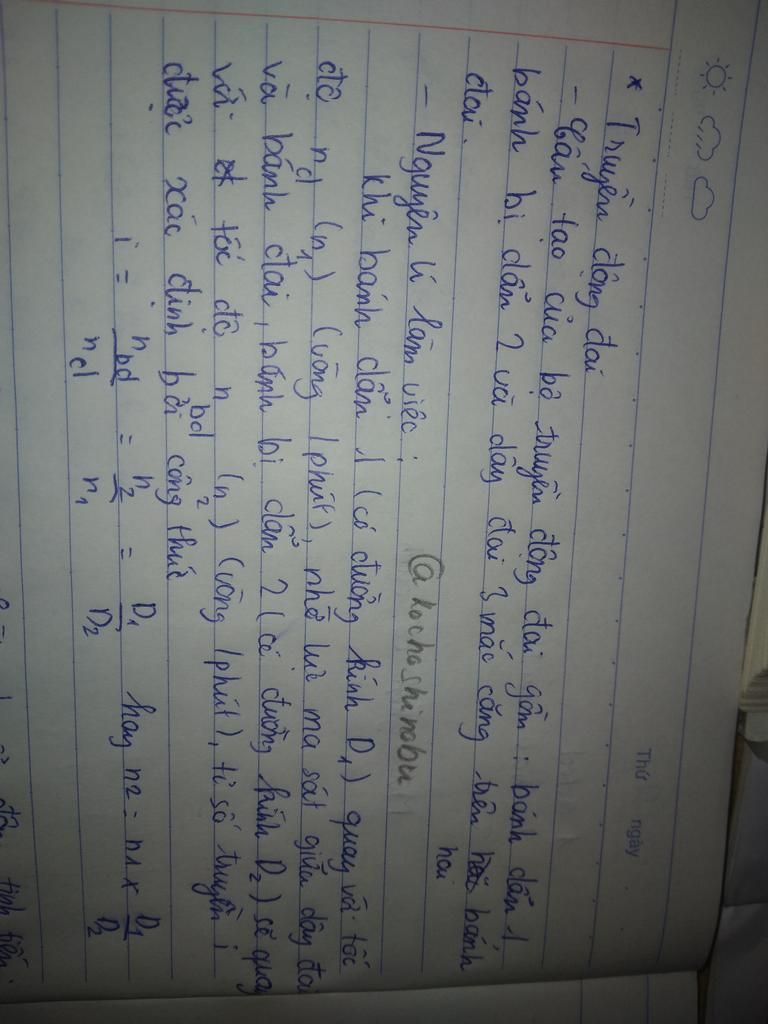 Thứ ngày
* Truyền động đai
- Cấu tạo của bộ truyền động đai gồm : bánh dẫn 1
bánh bị dẫn 2 và dây đai 3 mắc căng trên hai bánh
đai.
- Nguyên lí làm việc :
@kochoshinobu
khi bánh dẫn 1 (có đường kính D₁) quay với tốc
độ nd (n₁) (vòng/phút), nhờ lực ma sát giữa dây đai
và bánh đai, bánh bị dẫn 2 (có đường kính D₂) sẽ quay
với tốc độ nbd (n₂) (vòng/phút), tỉ số truyền i
được xác định bởi công thức
i = nbd/nd = n₂/n₁ = D₁/D₂ hay n₂ = n₁ x D₁/D₂
tịnh tiến